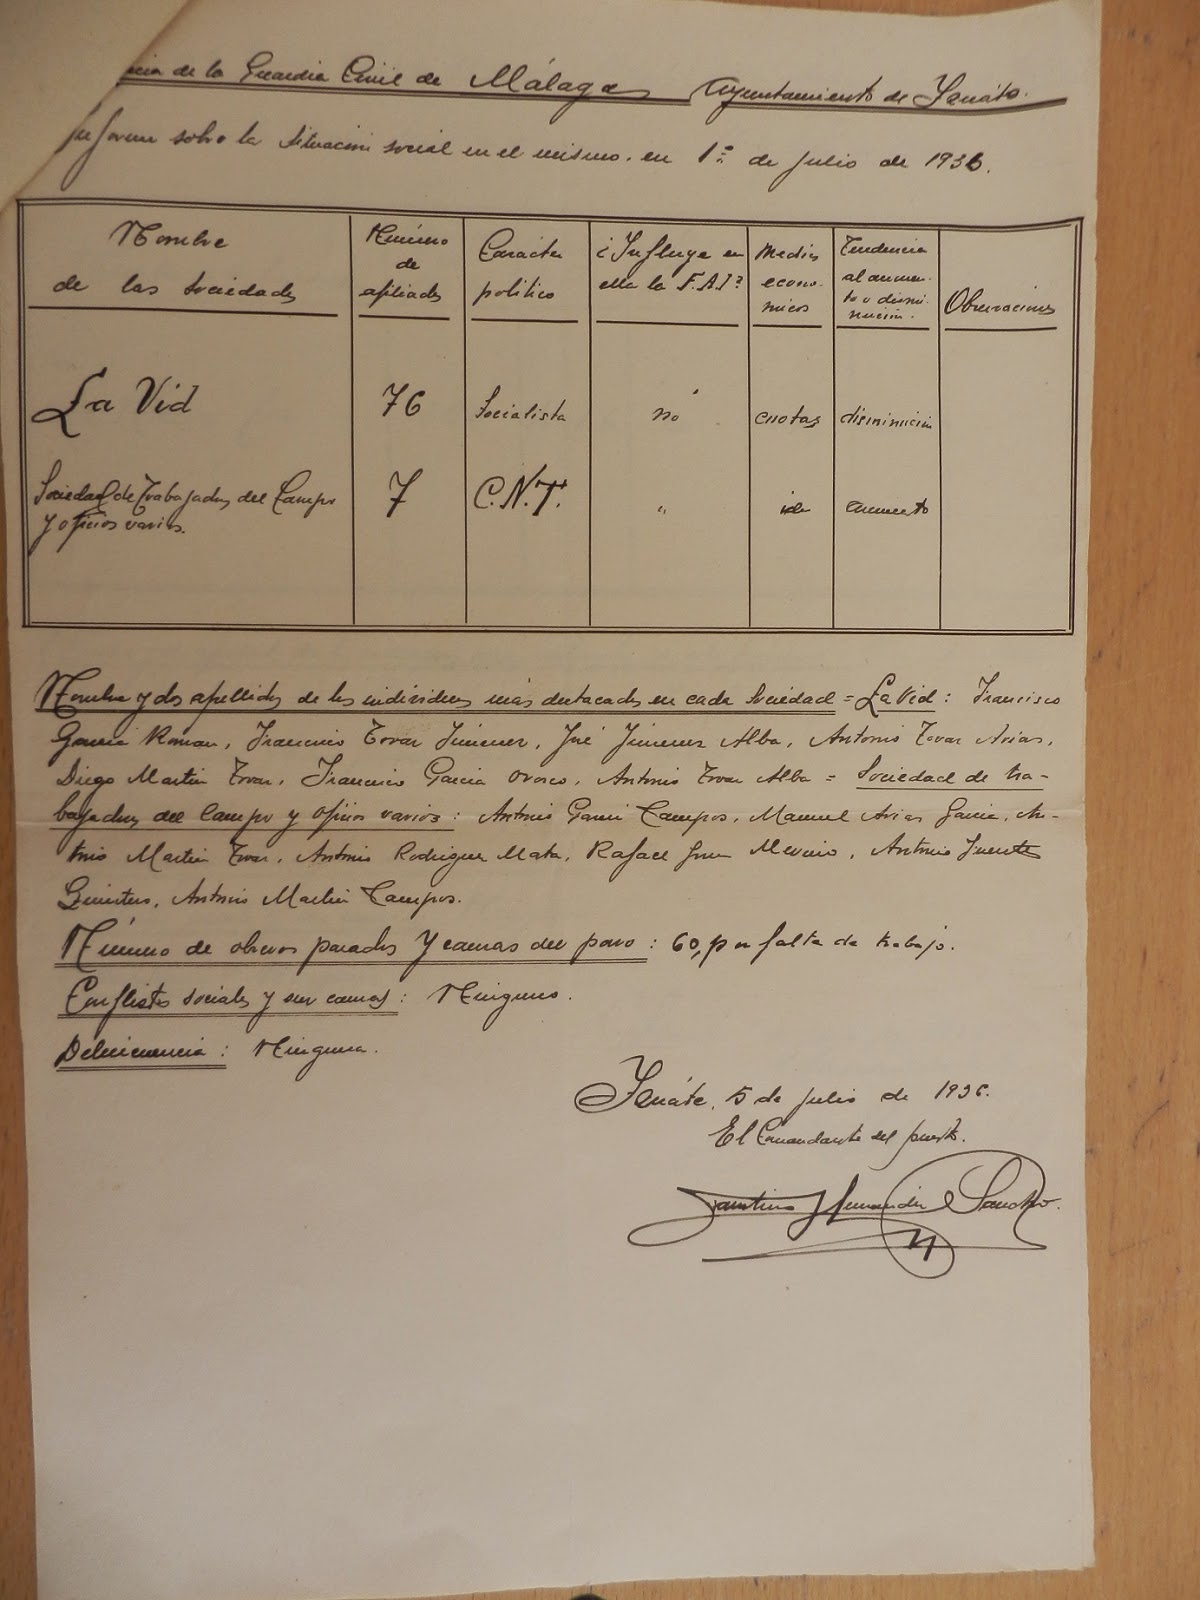 de la Guardia Civil de Málaga Ayuntamiento de Jenáto.
Informe sobre la situación social en el mismo, en 1º de julio de 1936.
Nombre
de las sociedades
Número
de
afiliados
Carácter
político
¿Influye en
ella la F.A.I?
Medios
econó-
micos
Tendencia
al aumen-
to o dismi-
nución.
Observaciones
La Vid
76
Socialista
no
cuotas
disminución
Sociedad de Trabajadores del Campo
y oficios varios.
7
C.N.T.
"
id
aumento
Nombre y dos apellidos de los individuos más destacados en cada sociedad = La Vid: Francisco
García Roman, Francisco Tovar Jimenez, José Jimenez Alba, Antonio Tovar Arias,
Diego Martin Tovar, Francisco Garcia Orosco, Antonio Tovar Alba = Sociedad de tra-
bajadores del Campo y Oficios varios: Antonio Garcia Campos, Manuel Arias Garcia, An-
tonio Martin Tovar, Antonio Rodriguez Mata, Rafael Merino, Antonio Fuentes
Quintero, Antonio Martin Campos.
Número de obreros parados y causas del paro: 60, por falta de trabajo.
Conflictos sociales y sus causas: Ninguno.
Delincuencia: Ninguna.
Jenáte, 5 de julio de 1936.
El Comandante del puesto.
Faustino Hernandez Sancho